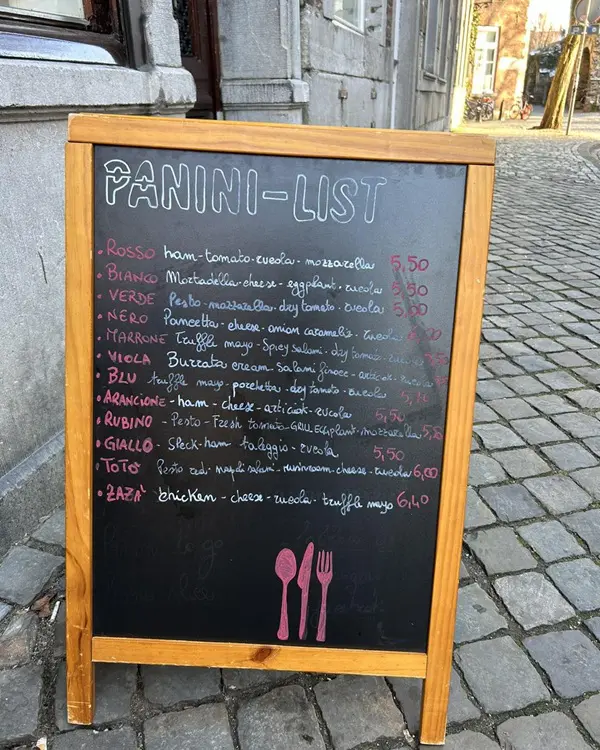 PANINI-LIST
• ROSSO ham-tomato-rucola-mozzarella 5,50
• BIANCO Mortadella-cheese-eggplant-rucola 5,50
• VERDE Pesto-mozzarella-dry tomato-rucola 5,00
• NERO Pancetta-cheese-onion carameliz-rucola
MARRONE Truffle mayo-Spicy salami-dry tomato-
• VIOLA Burrata cream-Salami finocc-articiok-rucola
• BLU truffle mayo-porchetta-dry tomato-rucola
• ARANCIONE-ham-cheese-articiok-rucola 5,50
• RUBINO-Pesto-Fresh tomato-GRILL EGGplant-mozzarella 5,50
• GIALLO-Speck-ham taleggio-rucola 5,50
• TOTO' Pesto red-napoli salami-mushroom-cheese-rucola 6,00
• ZAZA' chicken-cheese-rucola-truffle mayo 6,40